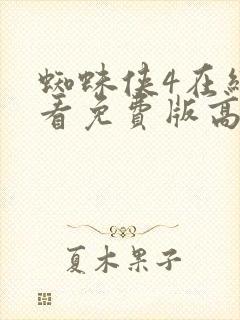 蜘蛛侠4在线
看免费版高
夏木果子